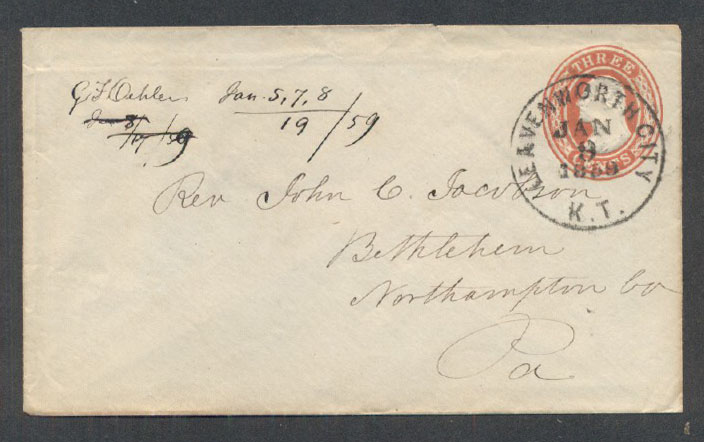 G F Oehler
Jan 8/
/17/59
Jan. 5, 7, 8
19 /59
THREE
CENTS
LEAVENWORTH CITY
JAN
9
1859
K. T.
Rev John C. Jacobson
Bethlehem
Northampton Co
Pa